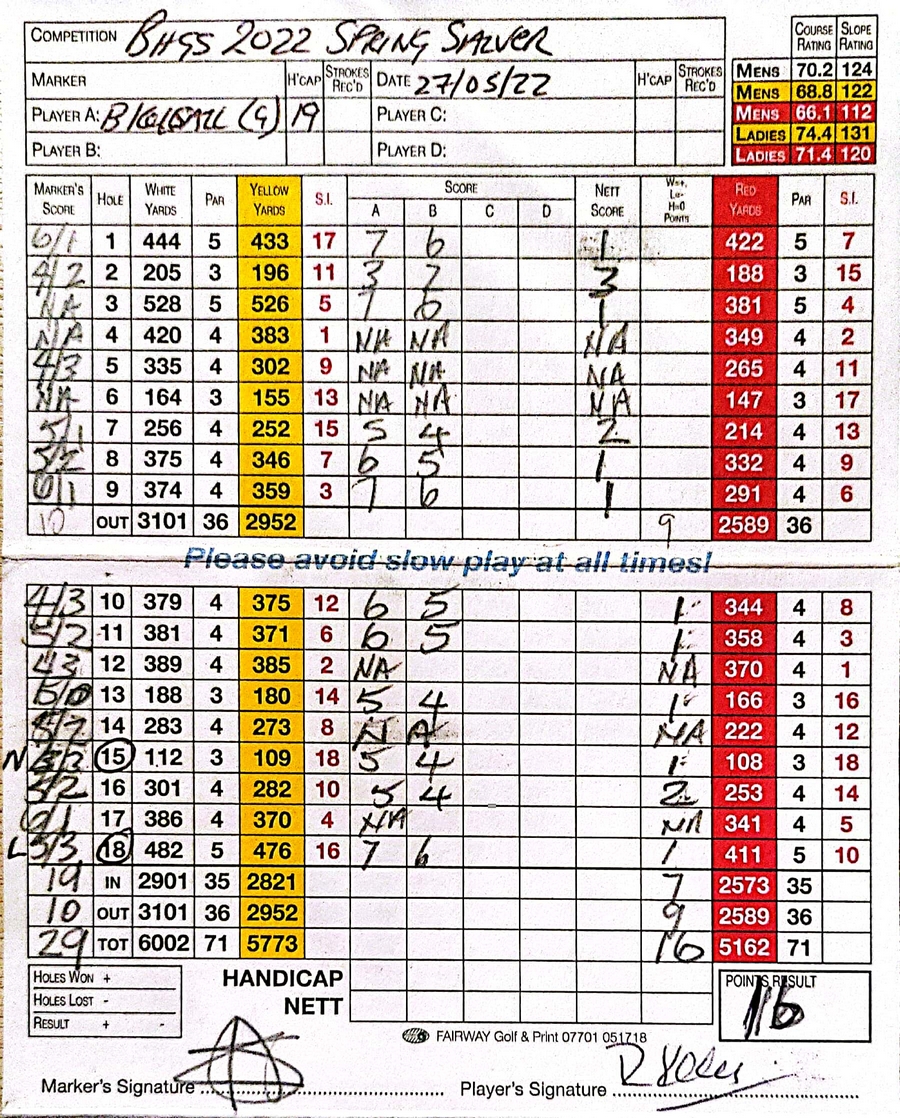 COMPETITION BHGS 2022 SPRING SALVER
COURSE RATING SLOPE RATING
MARKER H'CAP STROKES REC'D DATE 27/05/22 H'CAP STROKES REC'D
PLAYER A: (G) 19 PLAYER C:
PLAYER B: PLAYER D:
MENS 70.2 124
MENS 68.8 122
MENS 66.1 112
LADIES 74.4 131
LADIES 71.4 120
MARKER'S SCORE HOLE WHITE YARDS PAR YELLOW YARDS S.I. SCORE A B C D NETT SCORE W=+, L=- H=0 POINTS RED YARDS PAR S.I.
6/1 1 444 5 433 17 7 6 1 422 5 7
4/2 2 205 3 196 11 3 2 3 188 3 15
NA 3 528 5 526 5 7 6 1 381 5 4
NA 4 420 4 383 1 NA NA NA 349 4 2
4/3 5 335 4 302 9 NA NA NA 265 4 11
NA 6 164 3 155 13 NA NA NA 147 3 17
5/1 7 256 4 252 15 5 4 2 214 4 13
5/2 8 375 4 346 7 6 5 1 332 4 9
6/1 9 374 4 359 3 7 6 1 291 4 6
10 OUT 3101 36 2952 9 2589 36
Please avoid slow play at all times!
4/3 10 379 4 375 12 6 5 1 344 4 8
5/2 11 381 4 371 6 6 5 1 358 4 3
4/3 12 389 4 385 2 NA NA 370 4 1
6/0 13 188 3 180 14 5 4 1 166 3 16
5/2 14 283 4 273 8 NA NA 222 4 12
N 15 112 3 109 18 5 4 1 108 3 18
5/2 16 301 4 282 10 5 4 2 253 4 14
6/1 17 386 4 370 4 NA NA 341 4 5
L 5/3 18 482 5 476 16 7 6 1 411 5 10
19 IN 2901 35 2821 7 2573 35
10 OUT 3101 36 2952 9 2589 36
29 TOT 6002 71 5773 16 5162 71
HOLES WON +
HOLES LOST -
RESULT + -
HANDICAP
NETT
POINTS RESULT
16
FAIRWAY Golf & Print 07701 051718
Marker's Signature Player's Signature